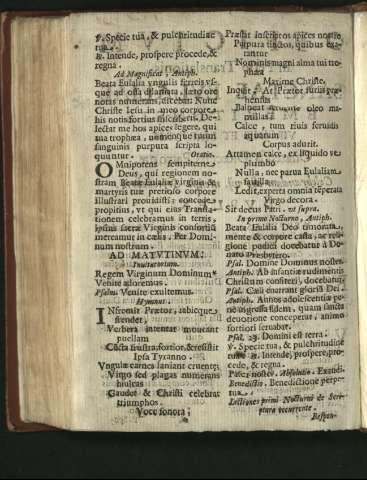 ℣. Specie tua, & pulchritudine
tua.
℟. Intende, prospere procede, &
regna.
Ad Magnificat, Antiph.
Beata Eulalia vngulis ferreis vs-
que ad ossa dilaniata, læto ore
notas numerans, dicebat: Nunc
Christe Iesu in meo corpore
his notis fortius inscriberis. De-
lectat me hos apices legere, qui
tua trophæa, nomenque tuum
sanguinis purpura scripta lo-
quuntur. Oratio.
OMnipotens sempiterne
Deus, qui regionem no-
stram Beatæ Eulaliæ virginis &
martyris tuæ pretioso corpore
illustrari prouidisti: concede
propitius, vt qui eius Transla-
tionem celebramus in terris,
ipsius sacræ Virginis consortiũ
mereamur in cælis. Per Domi-
num nostrum.
AD MATVTINVM:
Inuitatorium.
Regem Virginum Dominum*
Venite adoremus.
Psalm. Venite exultemus.
Hymnus.
INfremit Prætor, rabieque
stridet,
Verbera intentat moueant
puellam
Cũcta frustra, fortior, & resistit
Ipsa Tyranno.
Vngulæ carnes laniant cruentæ;
Virgo sed plagas numerans
hiulcas
Gaudet & Christi celebrat
triumphos
Voce sonora;
Præstat inscriptos apices nostro
Purpura tinctos, quibus exa-
rantur
Nominis magni alma tui tro-
phæa
Maxime Christe.
Inquit, At Prætor furijs
Balneat feruente oleo ma-
millas
Calce, tum riuis feruidis
aquarum
Corpus adurit.
Attamen calce, ex liquido ve
plumbo
Nulla, nec parua Eulaliam
fauilla
Ledit, experta omnia superata
Virgo decora.
Sit decus Patri. vt supra.
In primo Nocturno, Antiph.
Beata Eulalia Deo timorata,
mente & corpore casta, ac reli-
gione pudica docebatur à Do-
nato Presbytero.
Psal. Domine Dominus noster.
Antiph. Ab infantiæ rudimentis
Christum confiteri, docebatur,
Psal. Cæli enarrant gloriã Dei.
Antiph. Annos adolescentiæ pe-
ne ingressa fidem, quam sancta
deuotione conceperat, animo
fortiori seruabat.
Psal. 23. Domini est terra.
℣. Specie tua, & pulchritudine
tua. ℟. Intende, prospere, pro-
cede, & regna.
Pater noster. Absolutio. Exaudi.
Benedictio. Benedictione perpe-
tua.
Lectiones primi Nocturni de Scri-
ptura occurrente.
Respon-